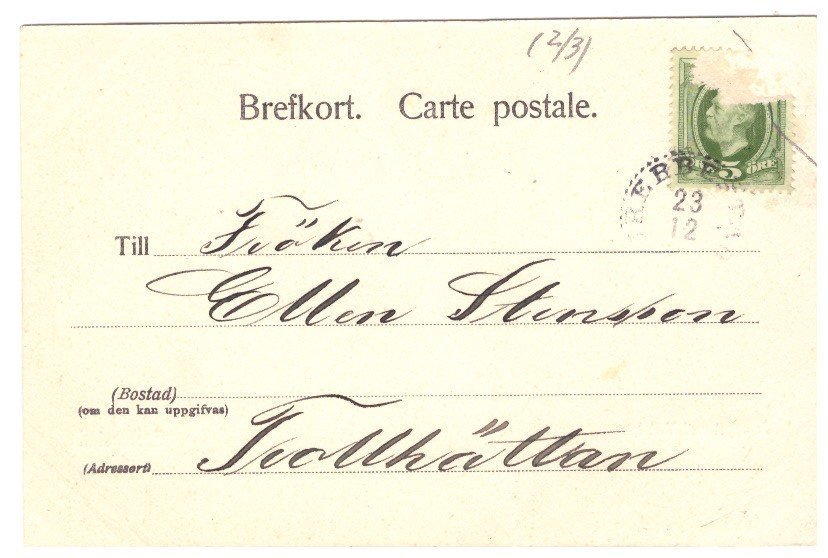 (2/3)
Brefkort. Carte postale.
5 ÖRE
23
12
Till Fröken
Ellen Stenson
(Bostad)
(om den kan uppgifvas)
(Adressort) Trollhättan